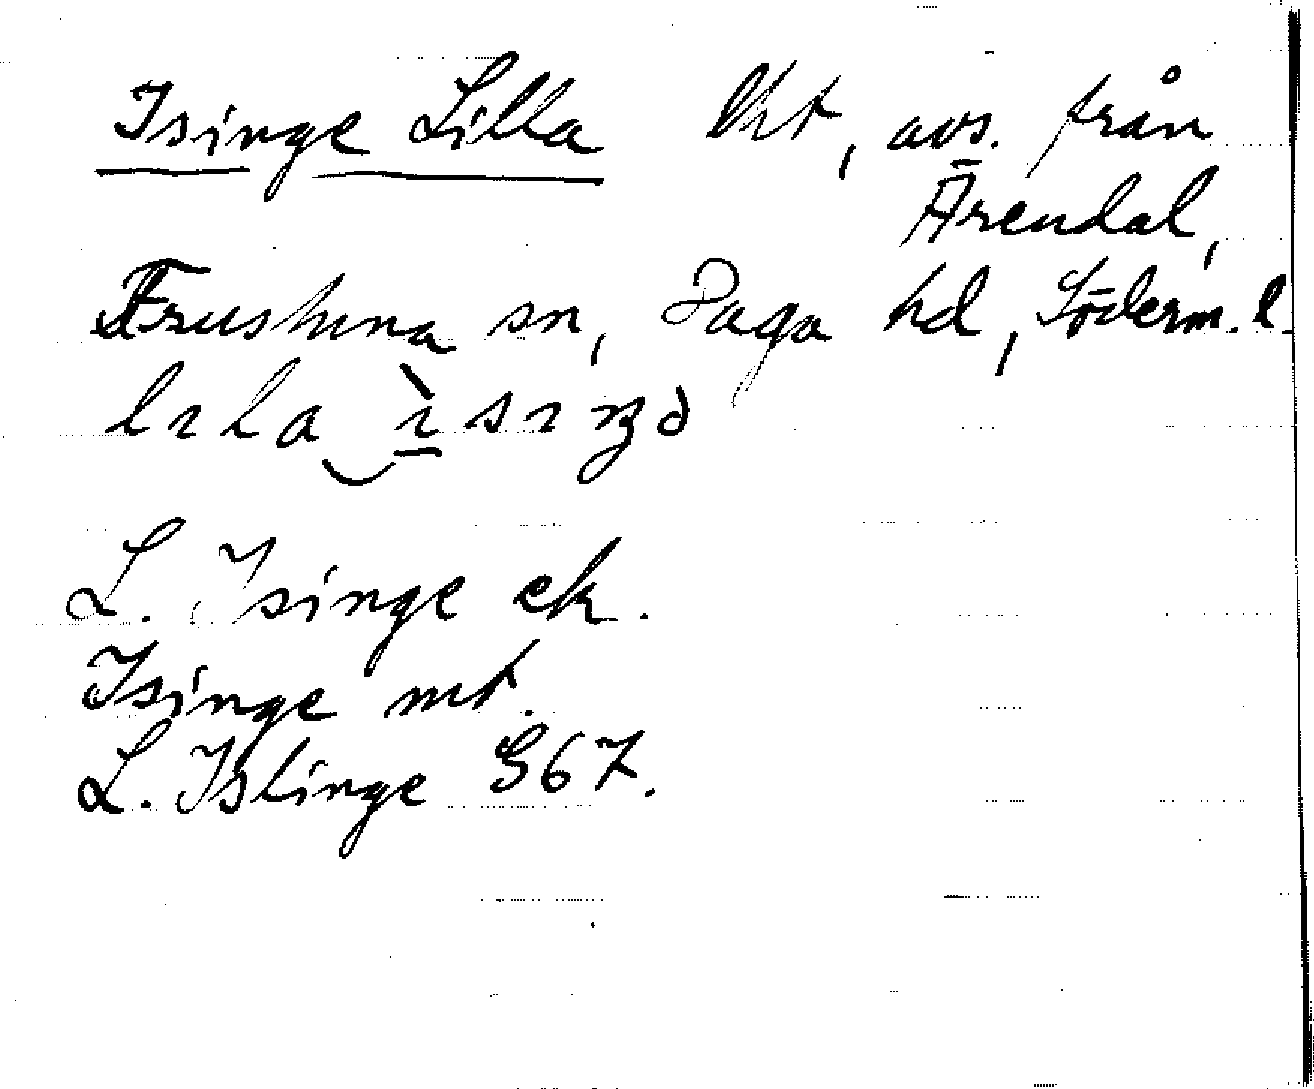 Isinge Lilla lht, avs. från
Ärendal,
Frustuna sn, Daga hd, Söderm. l.
L. Isinge ek.
Isinge mt.
L. Islinge G67.